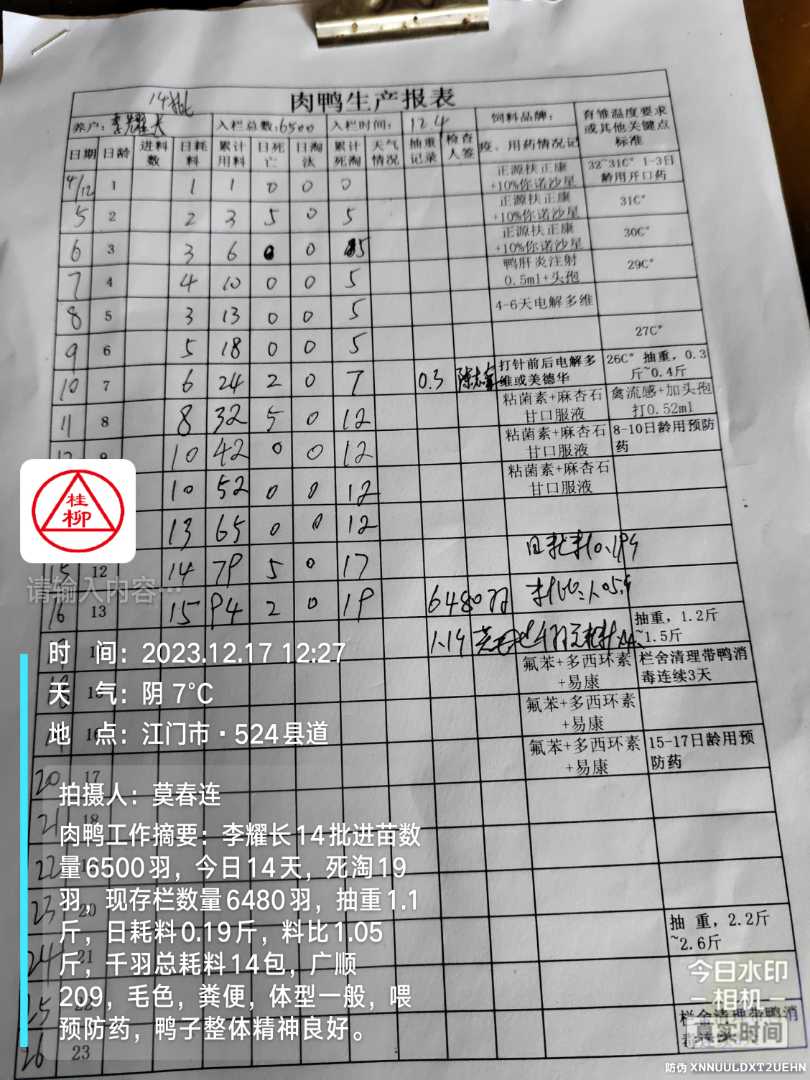 14批
肉鸭生产报表
养户: 李耀长 入栏总数: 6500 入栏时间: 12.4 饲料品牌: 育雏温度要求或其他关键点标准
日期 日龄 进料数 日耗料 累计用料 日死亡 日淘汰 累计死淘 天气情况 抽重记录 检查人签 疫、用药情况记
4/12 1 1 1 0 0 0 正源扶正康+10%你诺沙星 32~31C° 1-3日龄用开口药
5 2 2 3 5 0 5 正源扶正康+10%你诺沙星 31C°
6 3 3 6 0 0 5 正源扶正康+10%你诺沙星 30C°
7 4 4 10 0 0 5 鸭肝炎注射0.5ml+头孢 29C°
8 5 3 13 0 0 5 4-6天电解多维
9 6 5 18 0 0 5 27C°
10 7 6 24 2 0 7 0.3 打针前后电解多维或美德华 26C° 抽重，0.3斤~0.4斤
11 8 8 32 5 0 12 粘菌素+麻杏石甘口服液 禽流感+加头孢打0.52ml
12 9 10 42 0 0 12 粘菌素+麻杏石甘口服液 8-10日龄用预防药
10 52 0 0 12 粘菌素+麻杏石甘口服液
13 65 0 0 12
15 12 14 79 5 0 17 日耗料0.19斤
16 13 15 94 2 0 19 6480羽 料比:1.05斤
1.1斤 抽重，1.2斤~1.5斤
氟苯+多西环素+易康 栏舍清理带鸭消毒连续3天
16 氟苯+多西环素+易康
20 17 氟苯+多西环素+易康 15-17日龄用预防药
21 18
22
23 20 抽 重，2.2斤~2.6斤
24 21
25 栏舍清理带鸭消
26 23
桂柳
请输入内容…
时 间：2023.12.17 12:27
天 气：阴 7℃
地 点：江门市·524县道
拍摄人：莫春连
肉鸭工作摘要：李耀长14批进苗数
量6500羽，今日14天，死淘19
羽，现存栏数量6480羽，抽重1.1
斤，日耗料0.19斤，料比1.05
斤，千羽总耗料14包，广顺
209，毛色，粪便，体型一般，喂
预防药，鸭子整体精神良好。
今日水印
相机
真实时间
防伪 XNNUULDXT2UEHN